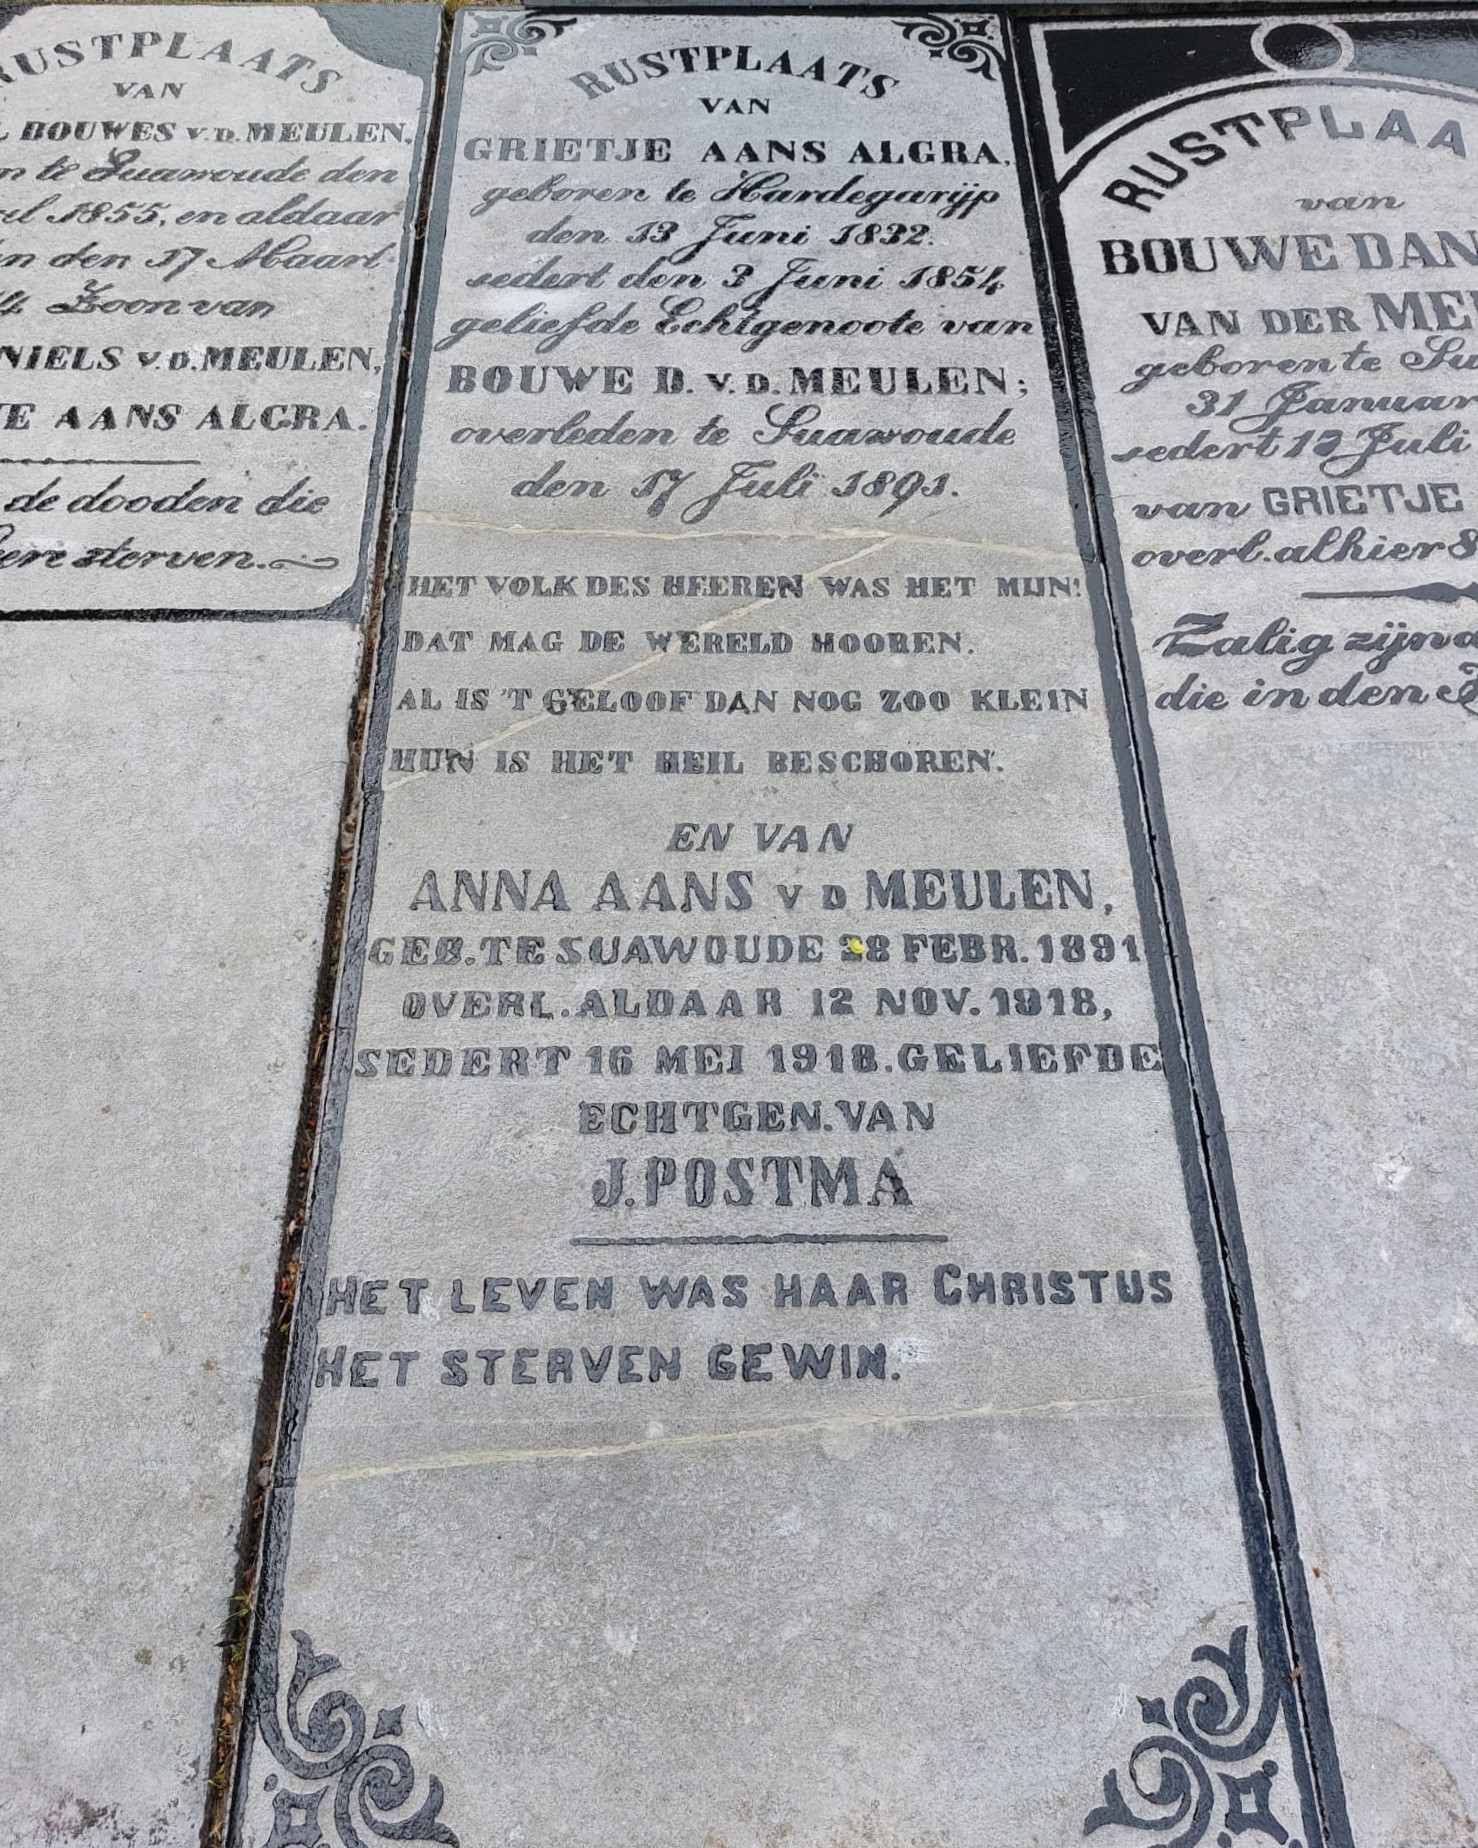 RUSTPLAATS
VAN
BOUWES V.D. MEULEN,
te Suawoude den
1855, en aldaar
den 17 Maart
Zoon van
NIELS V.D. MEULEN,
AANS ALGRA.
de dooden die
sterven.
RUSTPLAATS
VAN
GRIETJE AANS ALGRA,
geboren te Hardegarijp
den 13 Juni 1832.
sedert den 3 Juni 1854
geliefde Echtgenoote van
BOUWE D. V.D. MEULEN;
overleden te Suawoude
den 17 Juli 1891.
HET VOLK DES HEEREN WAS HET MIJN!
DAT MAG DE WERELD HOOREN.
AL IS 'T GELOOF DAN NOG ZOO KLEIN
HUN IS HET HEIL BESCHOREN.
EN VAN
ANNA AANS V D MEULEN,
GEB. TE SUAWOUDE 28 FEBR. 1891
OVERL. ALDAAR 12 NOV. 1918,
SEDERT 16 MEI 1918. GELIEFDE
ECHTGEN. VAN
J. POSTMA
HET LEVEN WAS HAAR CHRISTUS
HET STERVEN GEWIN.
RUSTPLAA
van
BOUWE DAN
VAN DER ME
geboren te Su
31 Januar
sedert 12 Juli
van GRIETJE
overl. alhier 8
Zalig zijn d
die in den